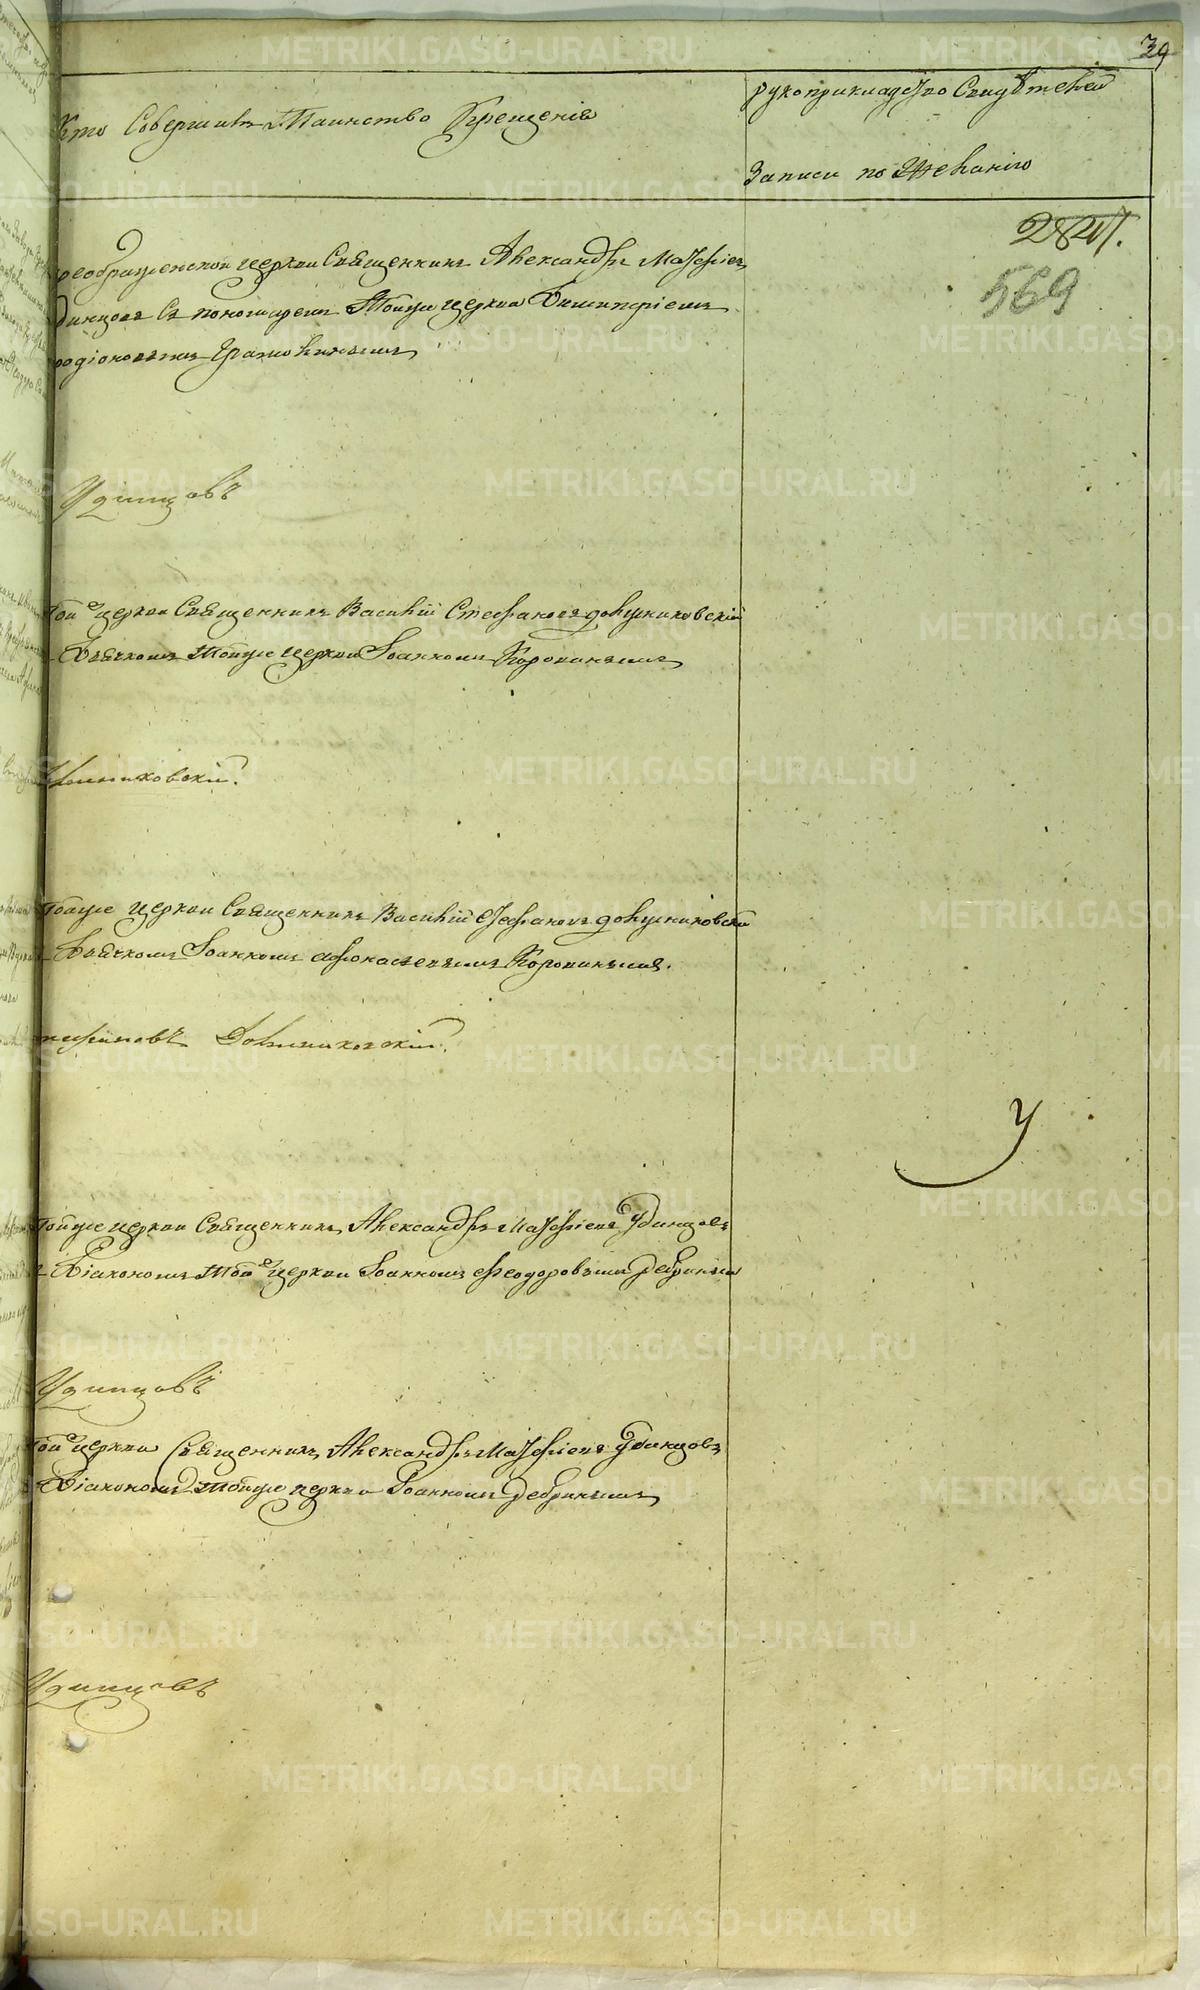 39
Кто Совершилъ Таинство Крещенія
рукоприкладство Свидѣтелей
Записи по Желанію
284.
569
реображенской церкви Священникъ Александръ Матфіев
динцовъ Съ пономаремъ Тойже церкви Димитріемъ
родіоновымъ
Удинцовъ
той церкви Священникъ Василій Стефановъ долшниковскій
Дьячкомъ Тойже церкви Іоанномъ Коровинымъ
лшниковскій.
Тойже церкви Священникъ Василій Стефановъ долшниковскій
Дьячкомъ Іоанномъ Афонасьевымъ Коровинымъ.
тефановъ Долшниковскій.
У
Тойже церкви Священникъ Александръ Матфіевъ Удинцовъ
Діакономъ Той же церкви Іоанномъ Феодоровымъ
Удинцовъ
той церкви Священникъ Александръ Матфіевъ Удинцовъ
Діакономъ Тойже церкви Іоанномъ
Удинцовъ
METRIKI.GASO-URAL.RU